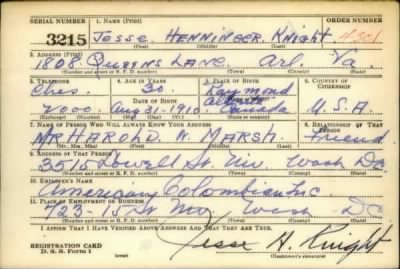 SERIAL NUMBER 1. NAME (Print) ORDER NUMBER
3215 Jesse HENNINGER Knight 4301
(First) (Middle) (Last)
2. ADDRESS (Print)
1808 Queens LANE. Arl. Va.
(Number and street or R. F. D. number) (Town) (County) (State)
3. TELEPHONE 4. AGE IN YEARS 5. PLACE OF BIRTH 6. COUNTRY OF CITIZENSHIP
Ches. 30 Raymond
DATE OF BIRTH Alberta
2000 Aug 31-1910 Canada U.S.A.
(Exchange) (Number) (Mo.) (Day) (Yr.) (State or country)
7. NAME OF PERSON WHO WILL ALWAYS KNOW YOUR ADDRESS 8. RELATIONSHIP OF THAT PERSON
Mr HAROLD N. MARSH. Friend
(Mr., Mrs., Miss) (First) (Middle) (Last)
9. ADDRESS OF THAT PERSON
3515 Lowell St. NW Wash DC.
(Number and street or R. F. D. number) (Town) (County) (State)
10. EMPLOYER'S NAME
American Colombian Inc
11. PLACE OF EMPLOYMENT OR BUSINESS
723-15 St NW Wash DC
(Number and street or R. F. D. number) (Town) (County) (State)
I AFFIRM THAT I HAVE VERIFIED ABOVE ANSWERS AND THAT THEY ARE TRUE.
REGISTRATION CARD
D. S. S. Form 1
Jesse H. Knight
(Registrant's signature)